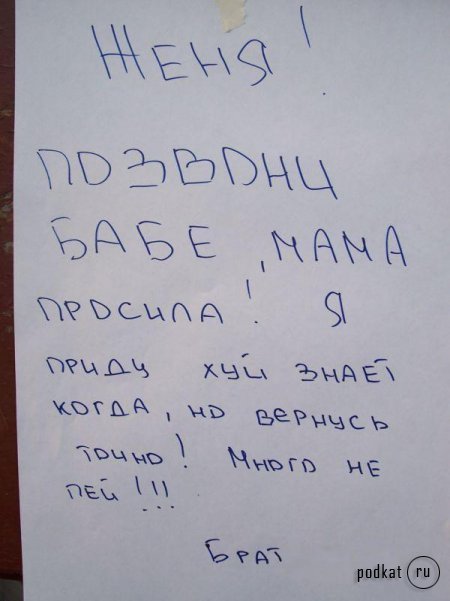 ЖЕНЯ!
ПОЗВОНИ
БАБЕ, МАМА
ПРОСИЛА! Я
ПРИДУ ХУЙ ЗНАЕТ
КОГДА, НО ВЕРНУСЬ
ТОЧНО! МНОГО НЕ
ПЕЙ!!!
БРАТ
podkat ru